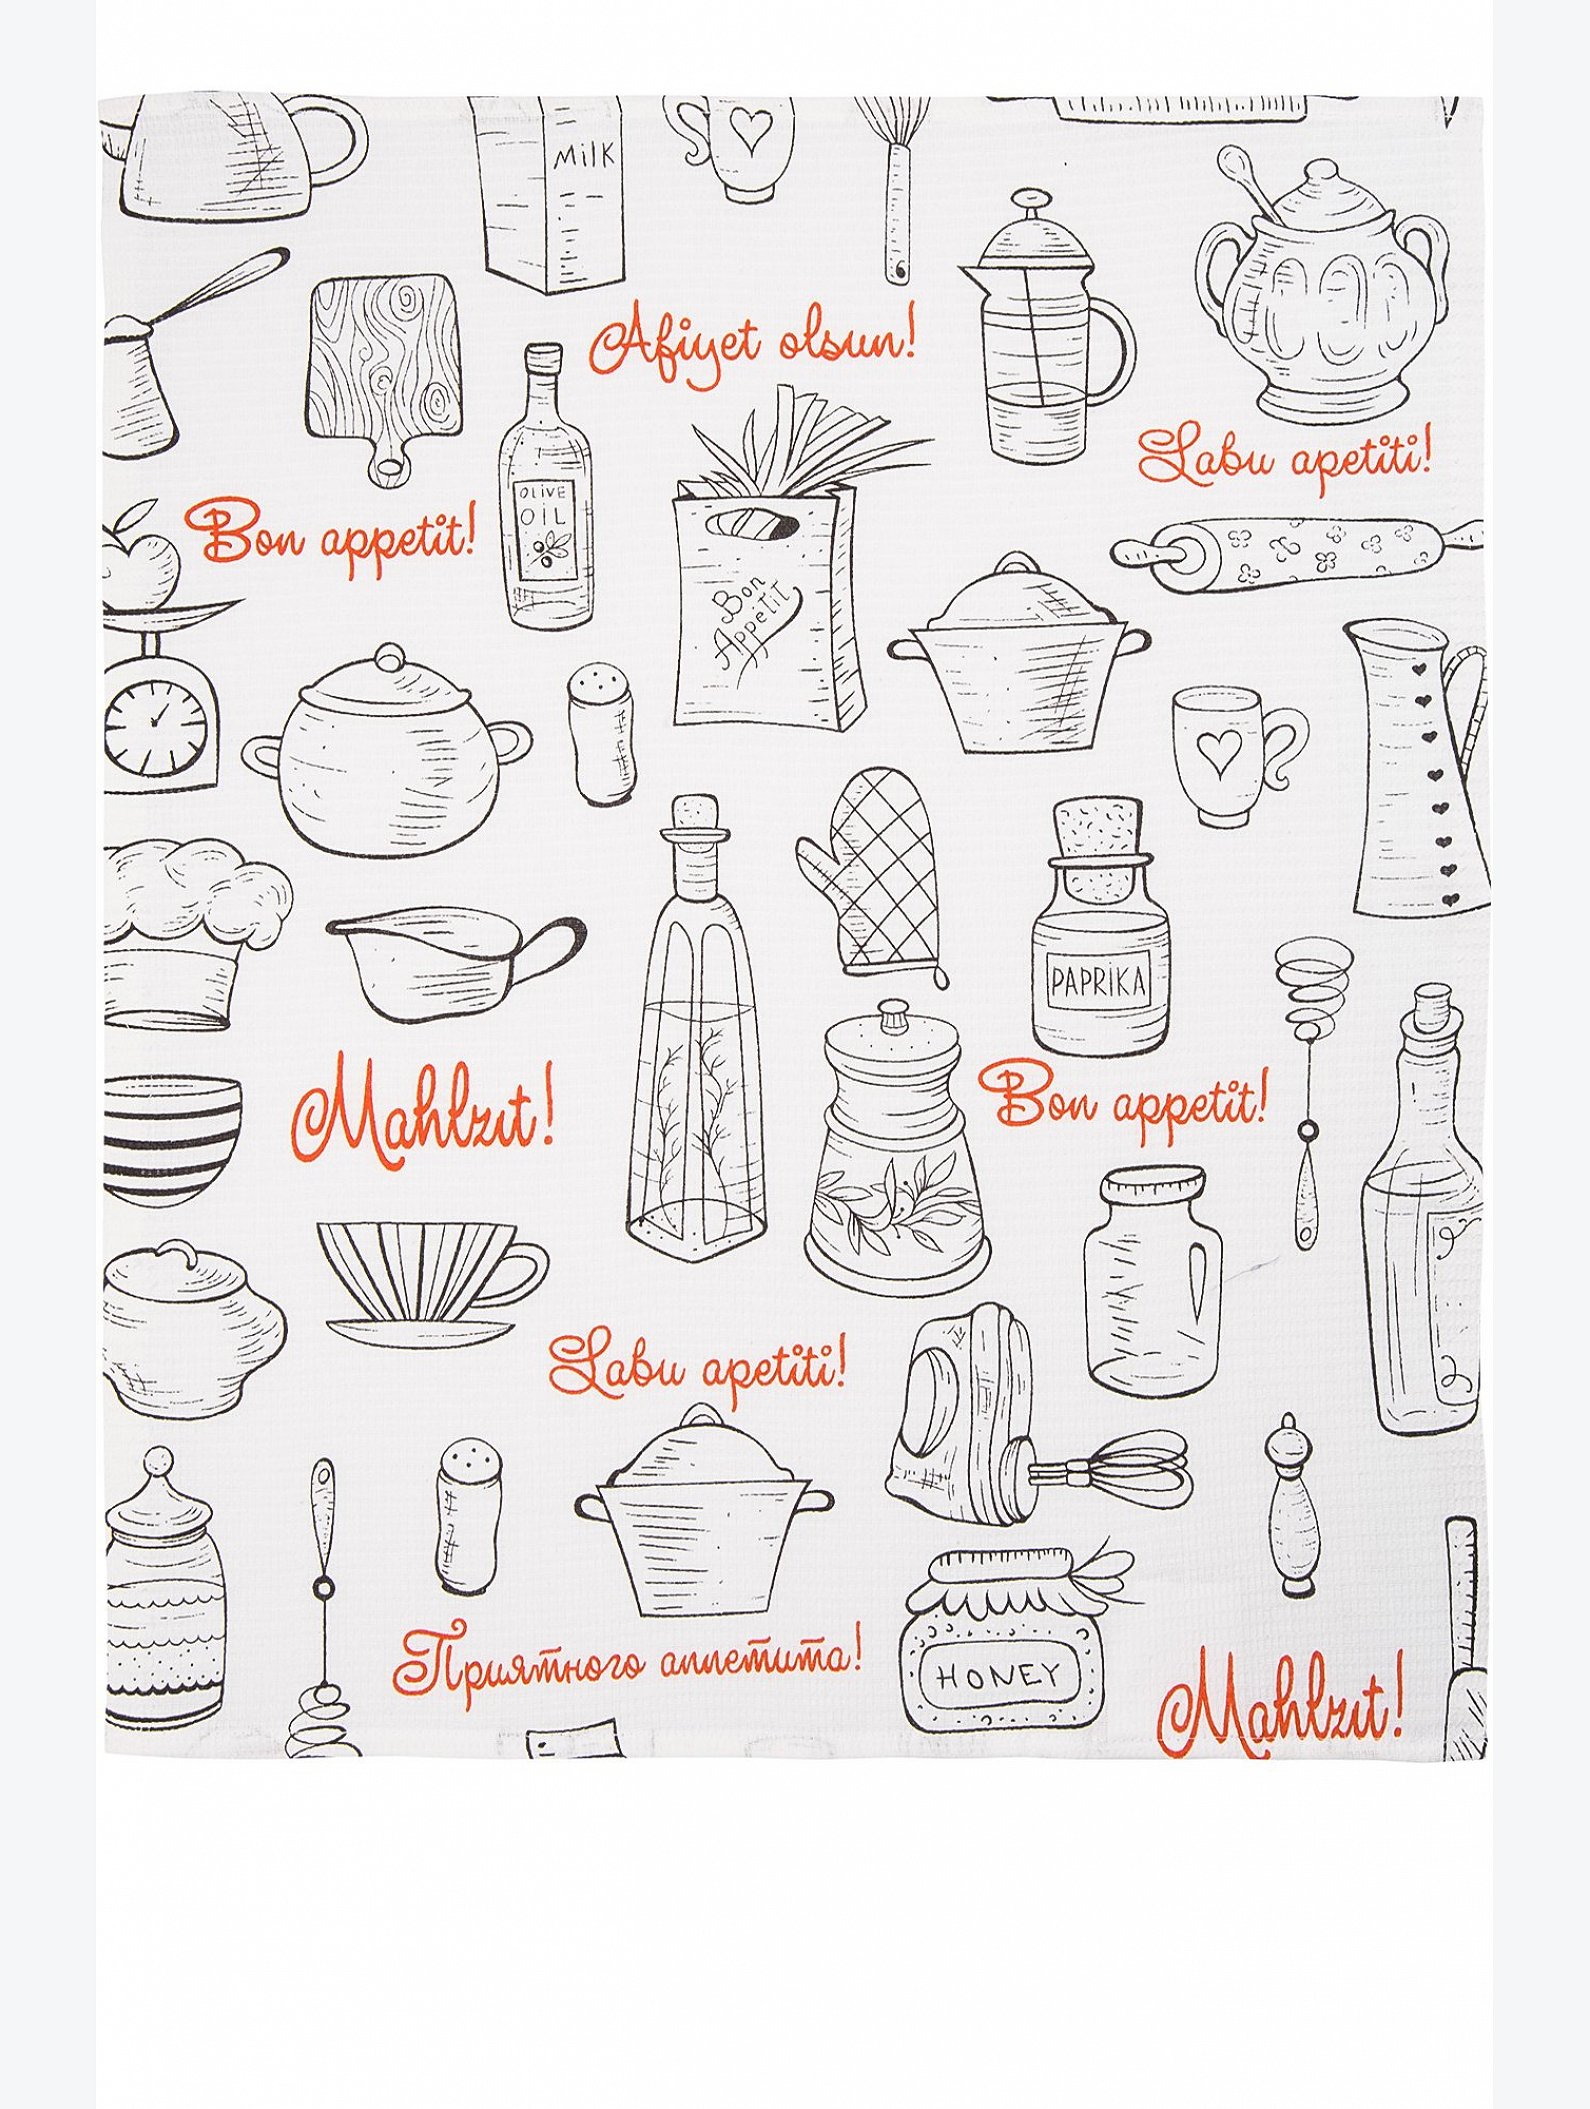 MilK
Afiyet olsun!
Labu apetiti!
OLiVE
OIL
Bon appetit!
Bon
Appetit
PAPRiKA
Mahlzıt!
Bon appetit!
Labu apetiti!
Приятного аппетита!
HONEY
Mahlzıt!